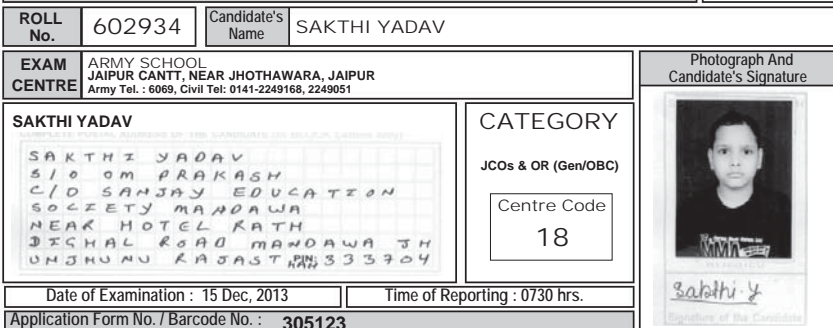 ROLL No. 602934 Candidate's Name SAKTHI YADAV
EXAM CENTRE
ARMY SCHOOL
JAIPUR CANTT, NEAR JHOTHAWARA, JAIPUR
Army Tel. : 6069, Civil Tel: 0141-2249168, 2249051
Photograph And
Candidate's Signature
SAKTHI YADAV
SAKTHI YADAV
S/O OM PRAKASH
C/O SANJAY EDUCATION
SOCIETY MANDAWA
NEAR HOTEL RATH
DIGHAL ROAD MANDAWA JH
UNJHUNU RAJASTHAN PIN: 333704
CATEGORY
JCOs & OR (Gen/OBC)
Centre Code
18
Sakthi.Y
Signature of the Candidate
Date of Examination : 15 Dec, 2013
Time of Reporting : 0730 hrs.
Application Form No. / Barcode No. : 305123